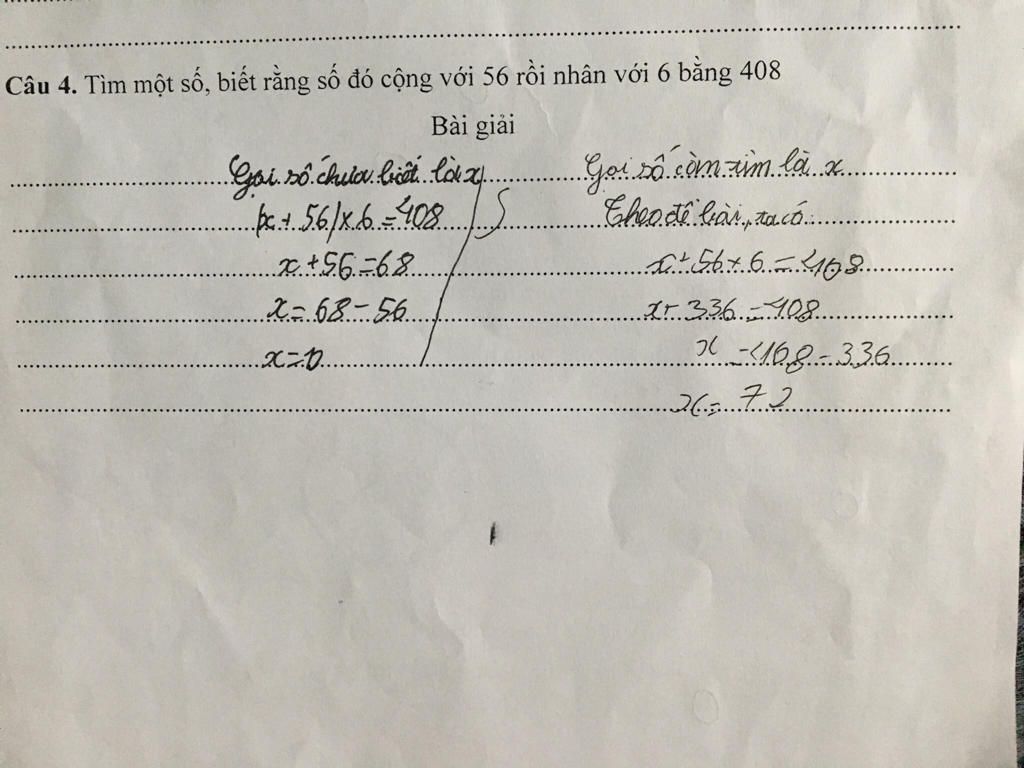 Câu 4. Tìm một số, biết rằng số đó cộng với 56 rồi nhân với 6 bằng 408
Bài giải
Gọi số chưa biết là x
(x + 56) x 6 = 408
x + 56 = 68
x = 68 - 56
x = 0
Gọi số cần tìm là x
Theo đề bài, ta có
x + 56 x 6 = 408
x + 336 = 408
x = 408 - 336
x = 72